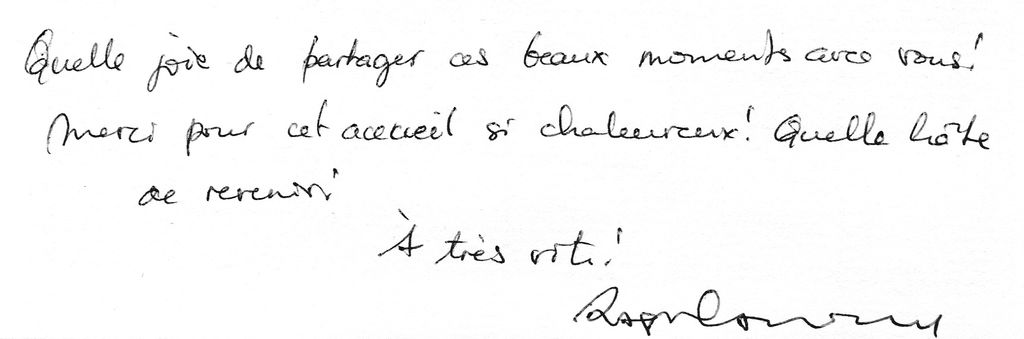 Quelle joie de partager ces beaux moments avec vous!
Merci pour cet accueil si chaleureux! Quelle hâte
de revenir!
À très vite!